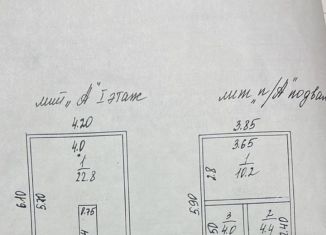 лит „А" I этаж
4.20
4.0
1
22.8
6.10
5.70
0.75
лит „п/А" подвал
3.85
3.65
1
10.2
2.8
5.90
3
4.0
2
4.4
2.40